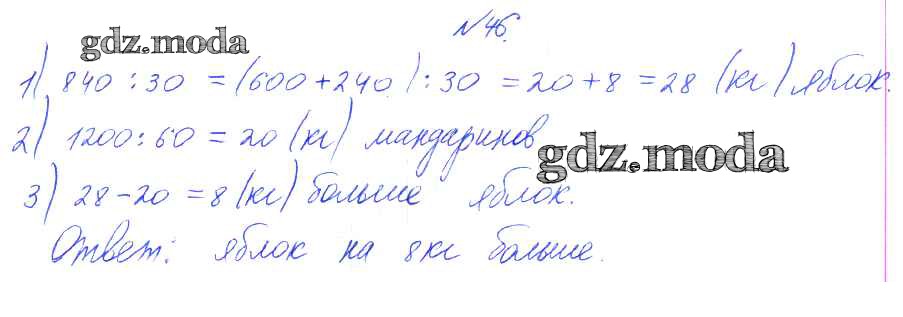 №46.
gdz.moda
1) 840 : 30 = (600 + 240) : 30 = 20 + 8 = 28 (кг) яблок.
2) 1200 : 60 = 20 (кг) мандаринов
gdz.moda
3) 28 - 20 = 8 (кг) больше яблок.
Ответ: яблок на 8 кг больше.